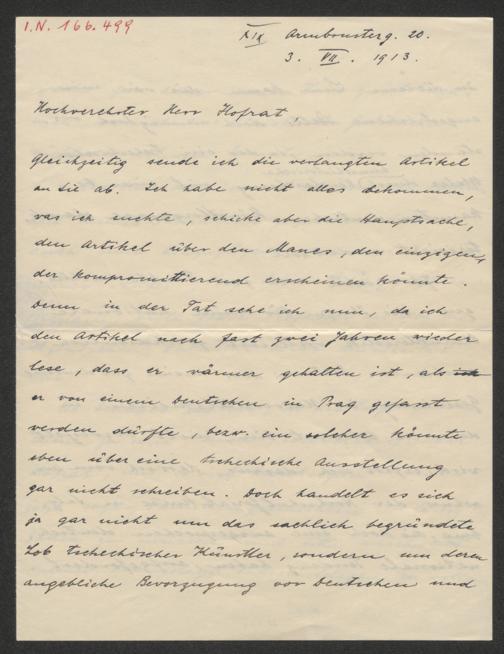 I.N. 166.499
XIX Armbrusterg. 20.
3. VII. 1913.
Hochverehrter Herr Hofrat,
Gleichzeitig sende ich die verlangten Artikel
an Sie ab. Ich habe nicht alles bekommen,
was ich suchte, schicke aber die Hauptsache,
den Artikel über den Manes, den einzigen,
der kompromittierend erscheinen könnte.
Denn in der Tat sehe ich nun, da ich
den Artikel nach fast zwei Jahren wieder
lese, dass er wärmer gehalten ist, als
er von einem Deutschen in Prag gefasst
werden dürfte, bezw. ein solcher könnte
eben über eine tschechische Ausstellung
gar nicht schreiben. Doch handelt es sich
ja gar nicht um das sachlich begründete
Lob tschechischer Künstler, sondern um deren
angebliche Bevorzugung vor Deutschen und